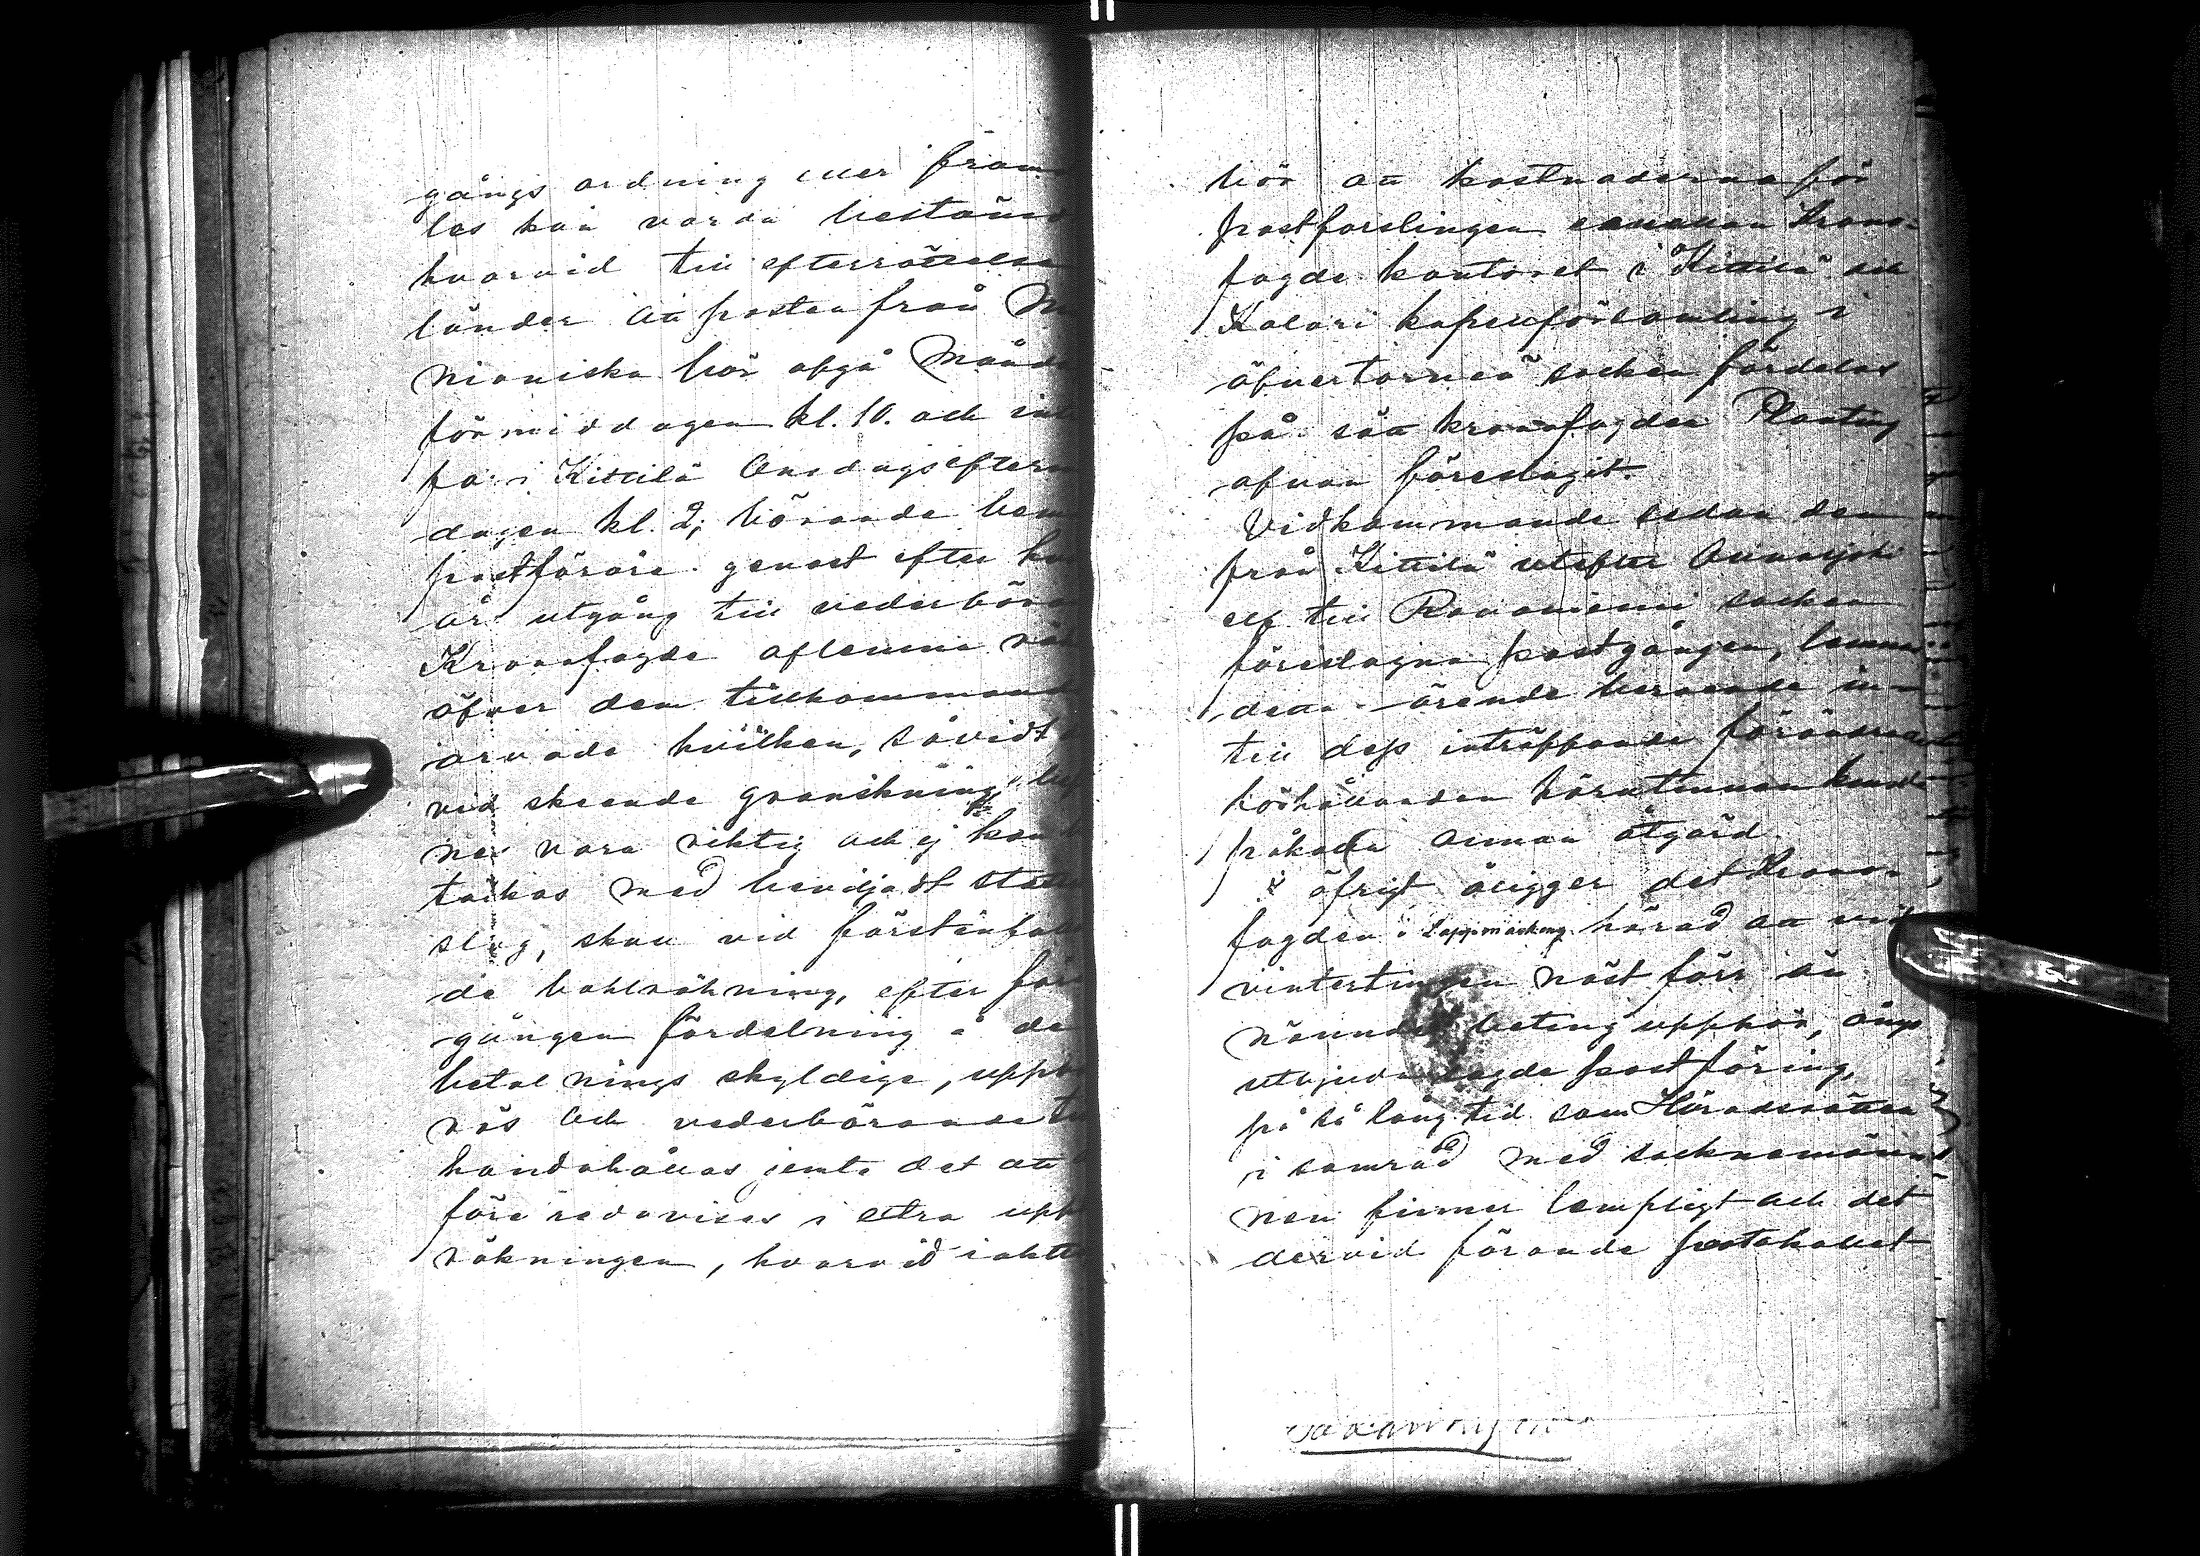 gångs ordning eller fram
las kan varda bestämd
hvarvid till efterrättelse
länder att posten från M
nioniska bör afgå Månd
förmiddagen kl. 10. och in
fa i Kittilä Onsdagsefterm
dagen kl. 2; börande bem
postförare genast efter hv
år utgång till vederböra
Kronofogde aflemna rä
öfver den tillkommand
arvode hvilken, såvidt
vid skeende granskning be
nes vara riktig och ej kan
täckas med beviljadt stat
slag, skall vid förstinfall
de bohlräkning, efter för
gången fördelning å de
betalnings skyldige, uppb
räs och vederbörande t
handahållas jemte det att
före redovises i extra upb
räkningen, hvarvid iaktt
bör att kostnaderna för
postforslingen emellan Krono-
fogde kontoret i Kittilä och
Kolari kapellförsamling i
öfvertorneå socken fördelas
på sätt kronofogden Planting
ofvan föreslagit.
Vidkommande sedan den
från Kittilä utefter Ounasjoki
elf till Rovaniemi socken
föreslagna postgången, lemnas
detta ärende beroende in-
till dess inträffande förändrade
förhållanden härutinnan kunde
påkalla annan åtgärd.
I öfrigt åligger det Krono-
fogden i Lappmarkens härad att vid
vintertingen näst förr än
nämnde beting upphör, ånyo
utbjuda sagde postföring,
på så lång tid som Häradsrätten
i samråd med socknemän-
nen finner lämpligt och det
dervid förande protokollet